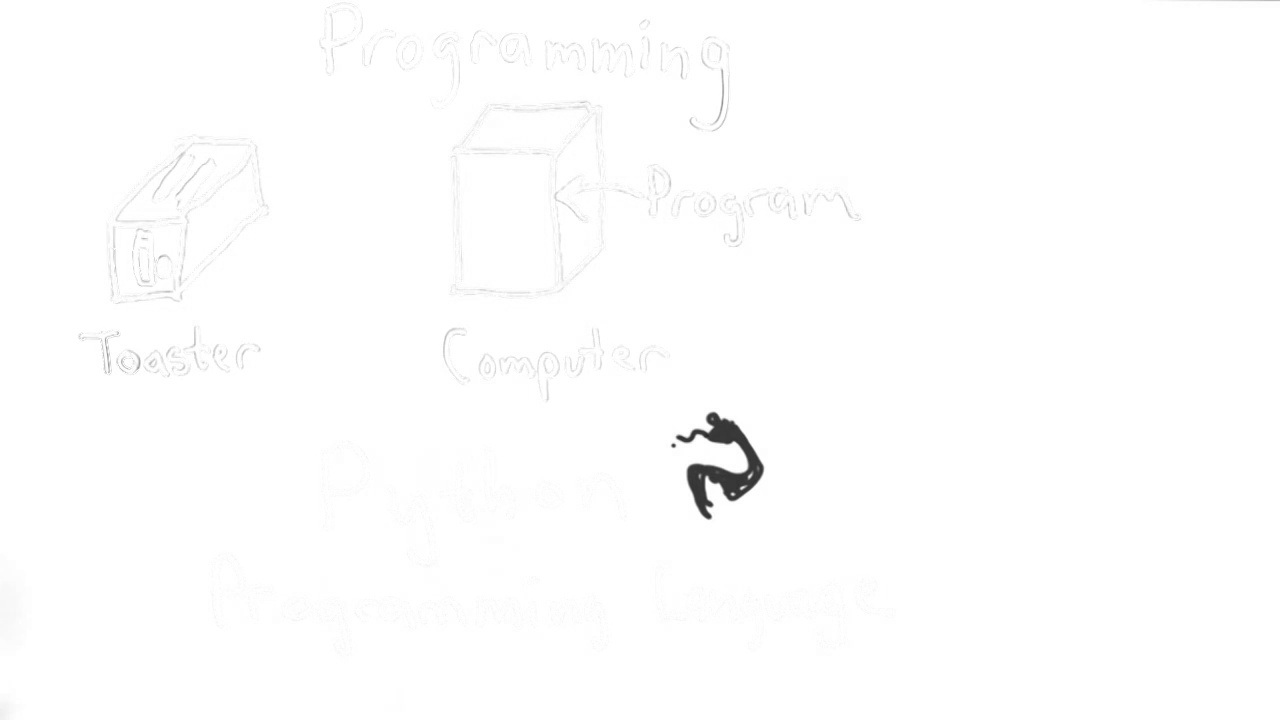 Programming
Program
Toaster
Computer
Python
Programming Language.